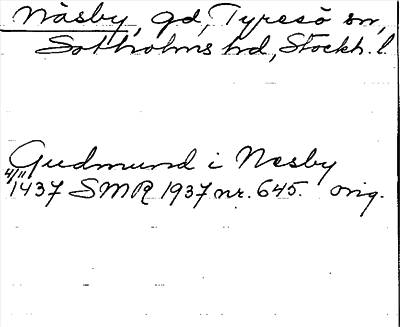 Näsby, gd, Tyresö sn,
Sotholms hd, Stockh. l.
Gudmund i Næsby
4/11 1437 SMR 1937 nr. 645. orig.